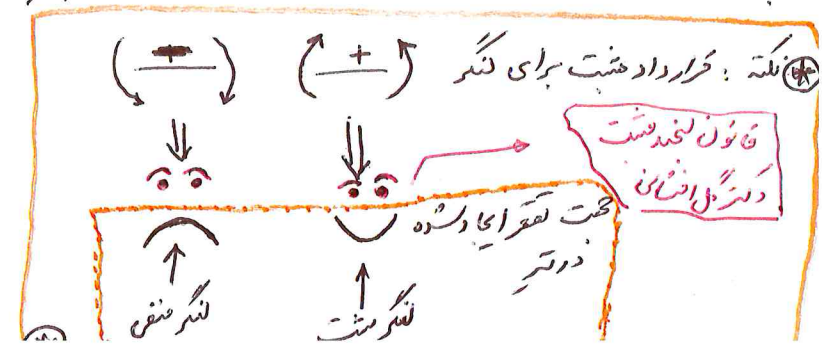 نکته : قرارداد مثبت برای لنگر
( + ) ( − )
قانون لبخند مثبت
دکتر گل افشانی
جهت تقعر ایجاد شده
در تیر
لنگر مثبت
لنگر منفی